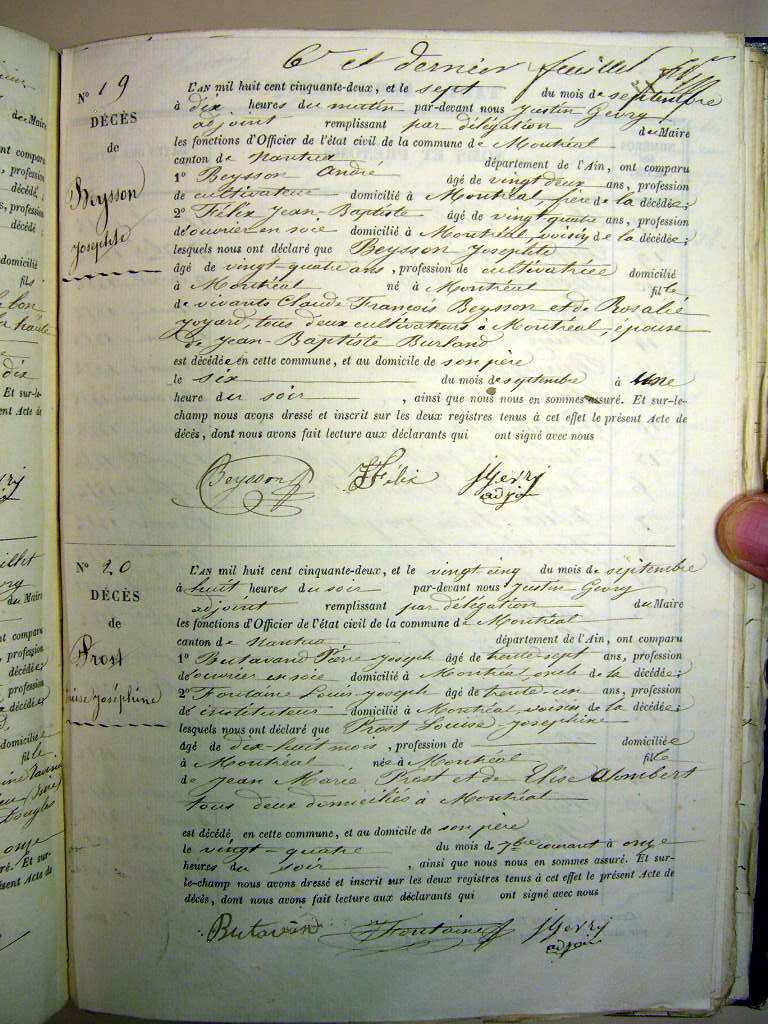 6e et dernier feuillet
N° 19
DÉCÈS
de
Beysson
Josephte
L'AN mil huit cent cinquante-deux, et le sept du mois de septembre
à dix heures du matin par-devant nous Justin Gevry
adjoint remplissant par délégation du Maire
les fonctions d'Officier de l'état civil de la commune de Montréal
canton de Nantua département de l'Ain, ont comparu
1° Beysson André âgé de vingt deux ans, profession
de cultivateur domicilié à Montréal, frère de la décédée;
2° Félix Jean-Baptiste âgé de vingt quatre ans, profession
d'ouvrier en soie domicilié à Montréal, voisin de la décédée;
lesquels nous ont déclaré que Beysson Josephte
âgé de vingt-quatre ans, profession de cultivatrice domicilié
à Montréal né à Montréal fille
de vivants Claude François Beysson et de Rosalie
Joyard, tous deux cultivateurs à Montréal, épouse
de Jean-Baptiste Burland
est décédée en cette commune, et au domicile de son père
le six du mois de septembre à une
heure du soir, ainsi que nous nous en sommes assuré. Et sur-le-
champ nous avons dressé et inscrit sur les deux registres tenus à cet effet le présent Acte de
décès, dont nous avons fait lecture aux déclarants qui ont signé avec nous
Beysson JFélix JGevry
adjoint
N° 20
DÉCÈS
de
Prost
Louise Joséphine
L'AN mil huit cent cinquante-deux, et le vingt cinq du mois de septembre
à huit heures du soir par-devant nous Justin Gevry
adjoint remplissant par délégation du Maire
les fonctions d'Officier de l'état civil de la commune de Montréal
canton de Nantua département de l'Ain, ont comparu
1° Butavand Pierre Joseph âgé de trente-sept ans, profession
d'ouvrier en soie domicilié à Montréal, oncle de la décédée;
2° Fontaine Louis-Joseph âgé de trente-un ans, profession
de instituteur domicilié à Montréal, voisin de la décédée;
lesquels nous ont déclaré que Prost Louise Josephine
âgé de dix-huit mois, profession de domiciliée
à Montréal née à Montréal fille
de Jean Marie Prost et de Elise Alombert
tous deux domiciliés à Montréal
est décédé en cette commune, et au domicile de son père
le vingt-quatre du mois de 7bre courant à onze
heures du soir, ainsi que nous nous en sommes assuré. Et sur-
le-champ nous avons dressé et inscrit sur les deux registres tenus à cet effet le présent Acte de
décès, dont nous avons fait lecture aux déclarants qui ont signé avec nous
Butavand Fontaine JGevry
adjoint